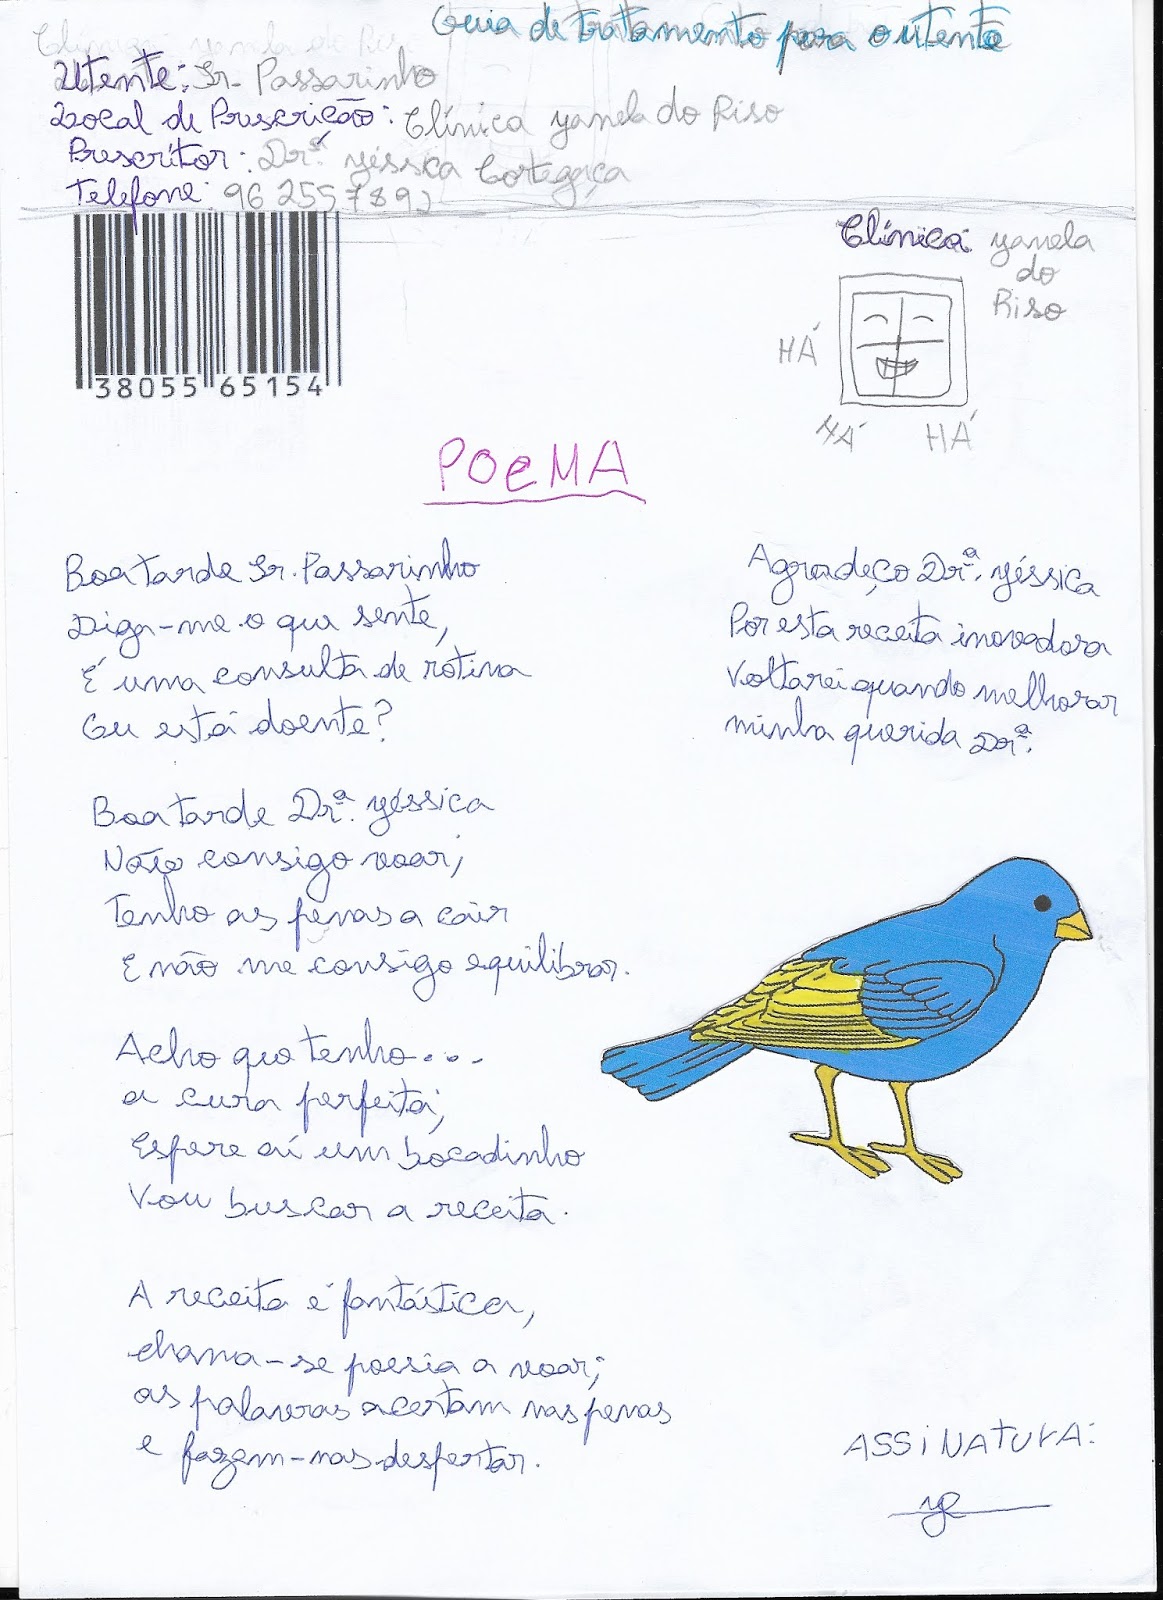 Guia de tratamento para o utente
Utente: Sr. Passarinho
Local de Prescrição: Clínica yanela do Riso
Prescritor: Drª. yéssica Cortegaça
Telefone: 96 2557892
38055 65154
Clínica yanela
do
Riso
HÁ
HÁ HÁ
POeMA
Boa tarde Sr. Passarinho
Diga-me o que sente,
É uma consulta de rotina
Ou está doente?
Boa tarde Drª. yéssica
Não consigo voar;
Tenho as penas a cair
E não me consigo equilibrar.
Acho que tenho...
a cura perfeita;
Espere aí um bocadinho
Vou buscar a receita.
A receita é fantástica,
chama-se poesia a voar;
as palavras acertam nas penas
e fazem-nas despertar.
Agradeço Drª. yéssica
Por esta receita inovadora
Voltarei quando melhorar
minha querida Drª.
ASSiNATURA:
yc